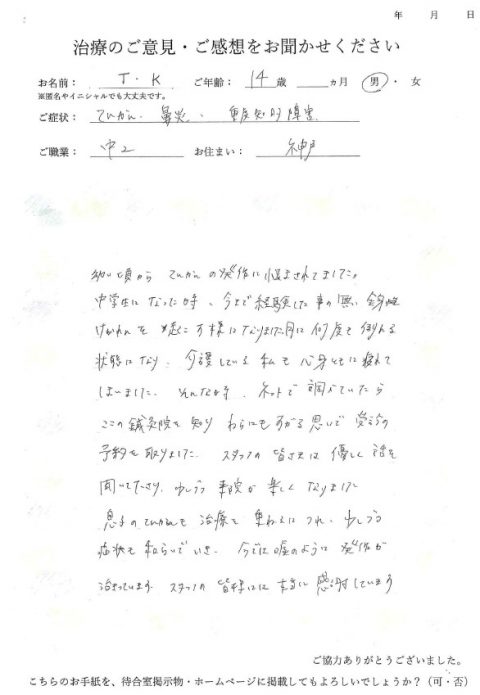 年 月 日
治療のご意見・ご感想をお聞かせください
お名前： T・K ご年齢： 14歳 ヵ月 男・女
※匿名やイニシャルでも大丈夫です。
ご症状： てんかん、鼻炎、重度知的障害
ご職業： 中2 お住まい： 神戸
幼い頃から てんかんの発作に悩まされてました。
中学生になった時、今まで経験した事の無い全身
けいれんを起こす様になりました。月に何度も倒れる
状態になり、介護している私も心身ともに疲れて
しまいました。そんな時、ネットで調べていたら
ここの鍼灸院を知り わらにもすがる思いで受診の
予約を取りました。スタッフの皆さんは優しく話を
聞いて下さり、少しづつ来院が楽しくなりました
息子のてんかんも治療を重ねるにつれ、少しづつ
症状も和らいでいき、今では嘘のように発作が
治まっています。スタッフの皆様には本当に感謝しています
ご協力ありがとうございました。
こちらのお手紙を、待合室掲示物・ホームページに掲載してもよろしいでしょうか？（可・否）